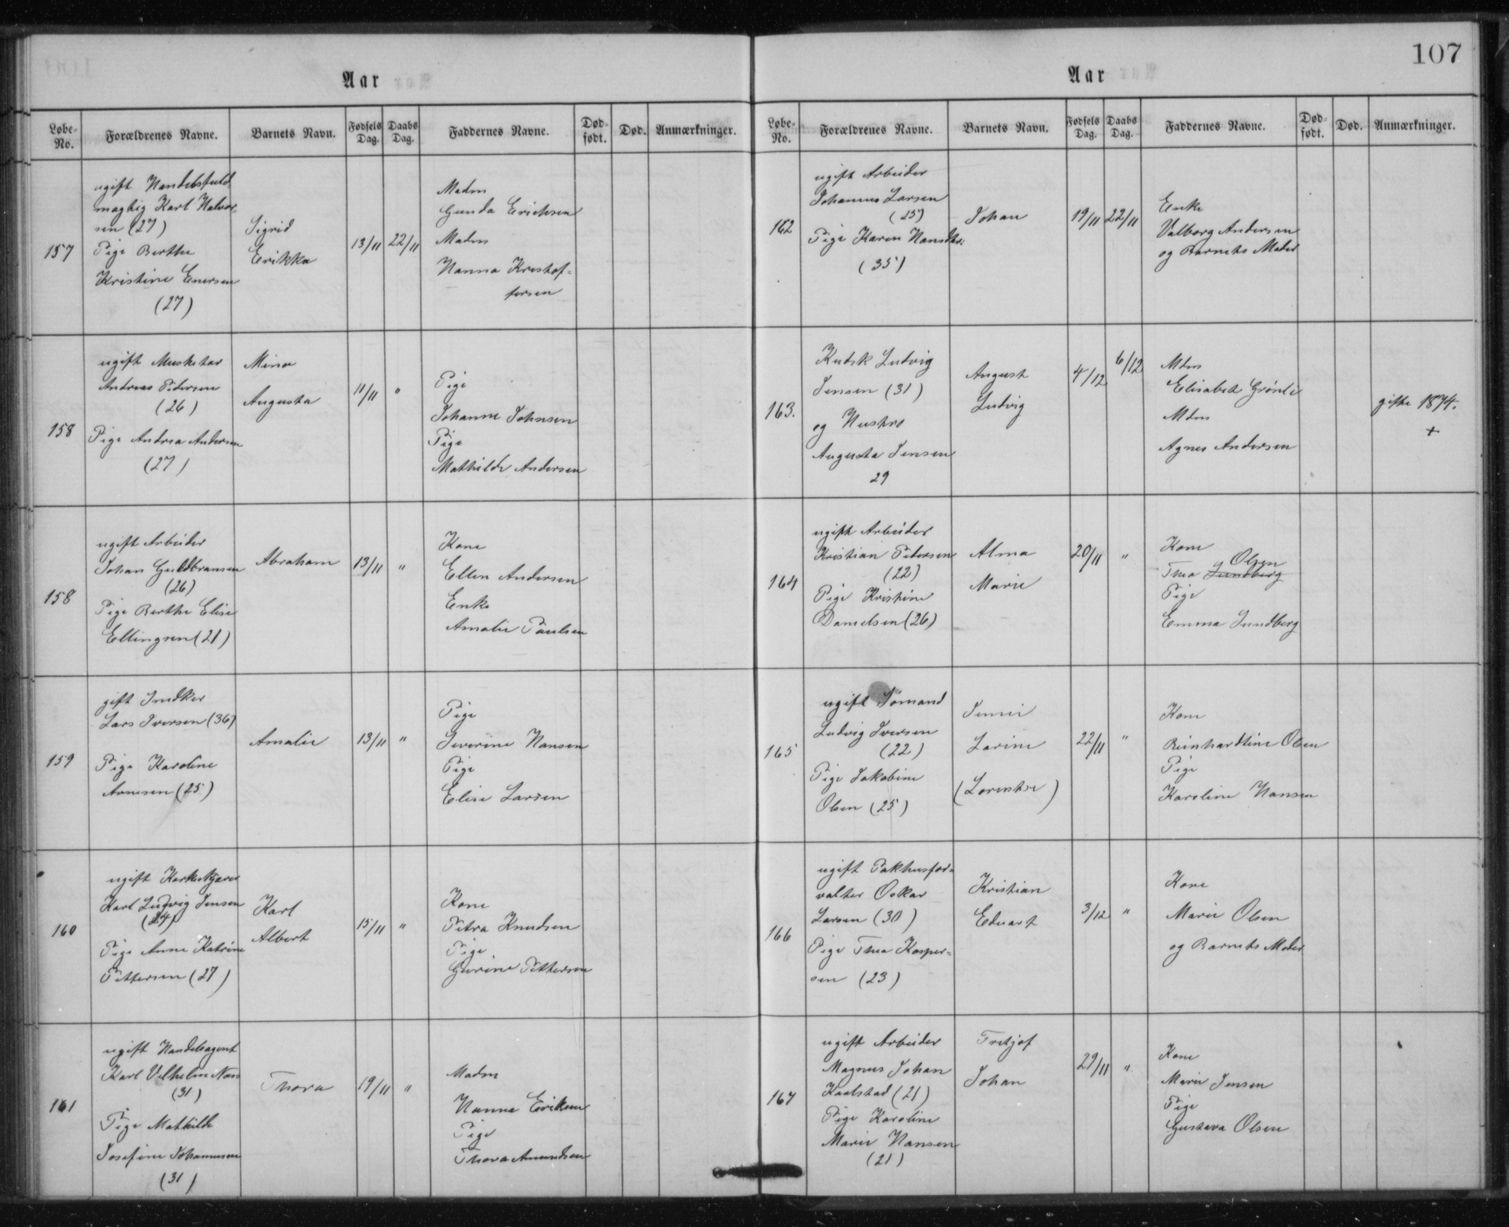 Aar
Løbe-No.
Forældrenes Navne.
Barnets Navn.
Fødsels Dag.
Daabs Dag.
Faddernes Navne.
Død-født.
Død.
Anmærkninger.
157
ugift Handelsfuld
mægtig Karl Halvor
sen (27)
Pige Berthe
Kristine Enersen
(27)
Sigrid
Erikka
13/11
22/11
Madm
Gunda Erichsen
Madm
Hanna Kristof-
fersen
158
ugift Musketer
Andreas Pedersen
(26)
Pige Andrea Andersen
(27)
Mina
Augusta
11/11
"
Pige
Johanne Johnsen
Pige
Mathilde Andersen
158
ugift Arbeider
Johan Guldbransen
(26)
Pige Berthe Elise
Ellingsen (21)
Abraham
13/11
"
Kone
Ellen Andersen
Enke
Amalie Paulsen
159
gift
Lars Iversen (36)
Pige Karoline
Arnesen (25)
Amalie
13/11
"
Pige
Severine Hansen
Pige
Elise Larsen
160
ugift Korkskjærer
Karl Ludvig Jensen
(24)
Pige Anne Katrine
Pettersen (27)
Karl
Albert
15/11
"
Kone
Petra Knudsen
Pige
Gurine Pettersen
161
ugift Handelsagent
Karl Vilhelm Næss
(31)
Pige Mathilde
Josefine Johannesen
(31)
Thora
19/11
"
Madm
Hanna Eriksen
Pige
Thora Amundsen
107
Aar
Løbe-No.
Forældrenes Navne.
Barnets Navn.
Fødsels Dag.
Daabs Dag.
Faddernes Navne.
Død-født.
Død.
Anmærkninger.
162
ugift Arbeider
Johannes Larsen
(25)
Pige Karen
(35)
Johan
19/11
22/11
Enke
Valborg Andersen
og Barnets Moder
163.
Kudsk Ludvig
Jensen (31)
og Hustro
Augusta Jensen
29
August
Ludvig
4/12
6/12
Mdm
Elisabet Grönli
Mdm
Agnes Andersen
gifte 1874.
+
164
ugift Arbeider
Kristian Petersen
(22)
Pige Kristine
Danielsen (26)
Alma
Marie
20/11
"
Kone
Olsen
Thea Lundberg
Pige
Emma Lundberg
165
ugift Sömand
Ludvig Iversen
(22)
Pige Jakobine
Olsen (25)
Jenni
Lovine
(Lorentse)
22/11
"
Kone
Reinhardtine Olsen
Pige
Karoline Hansen
166
ugift Pakhusfor-
valter Oskar
Larsen (30)
Pige Thea Kasper-
sen (23)
Kristian
Eduart
3/12
"
Kone
Marie Olsen
og Barnets Moder
167
ugift Arbeider
Magnus Johan
Kaalstad (21)
Pige Karoline
Marie Hansen
(21)
Fritjof
Johan
29/11
"
Kone
Marie Jensen
Pige
Gustava Olsen